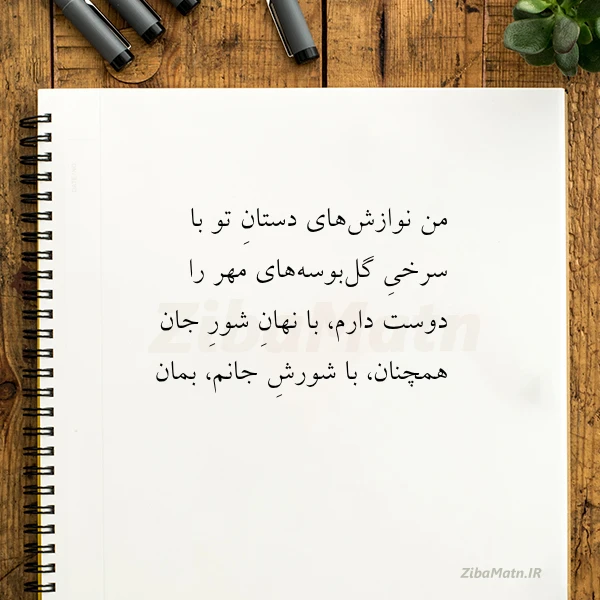 من نوازش‌های دستانِ تو با
سرخیِ گل‌بوسه‌های مهر را
دوست دارم، با نهانِ شورِ جان
همچنان، با شورشِ جانم، بمان
ZibaMatn
ZibaMatn.IR